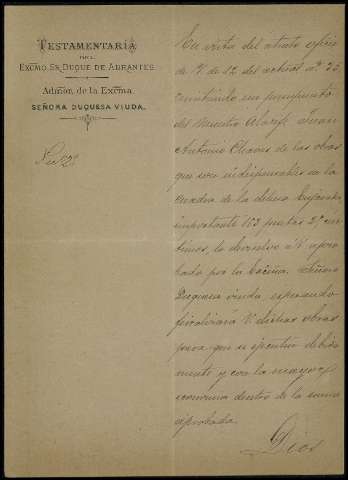 TESTAMENTARÍA
DEL
EXCMO. SR. DUQUE DE ABRANTES
Admón. de la Excma.
SEÑORA DUQUESA VIUDA.
En vista del atento oficio
de V. de 12 del actual nº 25,
remitiendo un presupuesto
del Maestro Alarife Juan
Antonio Chaves de las obras
que son indispensables en la
cuadra de la dehesa
importante 103 pesetas 2 cén
timos, lo devuelvo á V. apro
bado por la Excma. Señora
Duquesa viuda, esperando
fiscalizará V. dichas obras
para que se ejecuten debida
mente y con la mayor
economía dentro de la suma
aprobada.
Dios